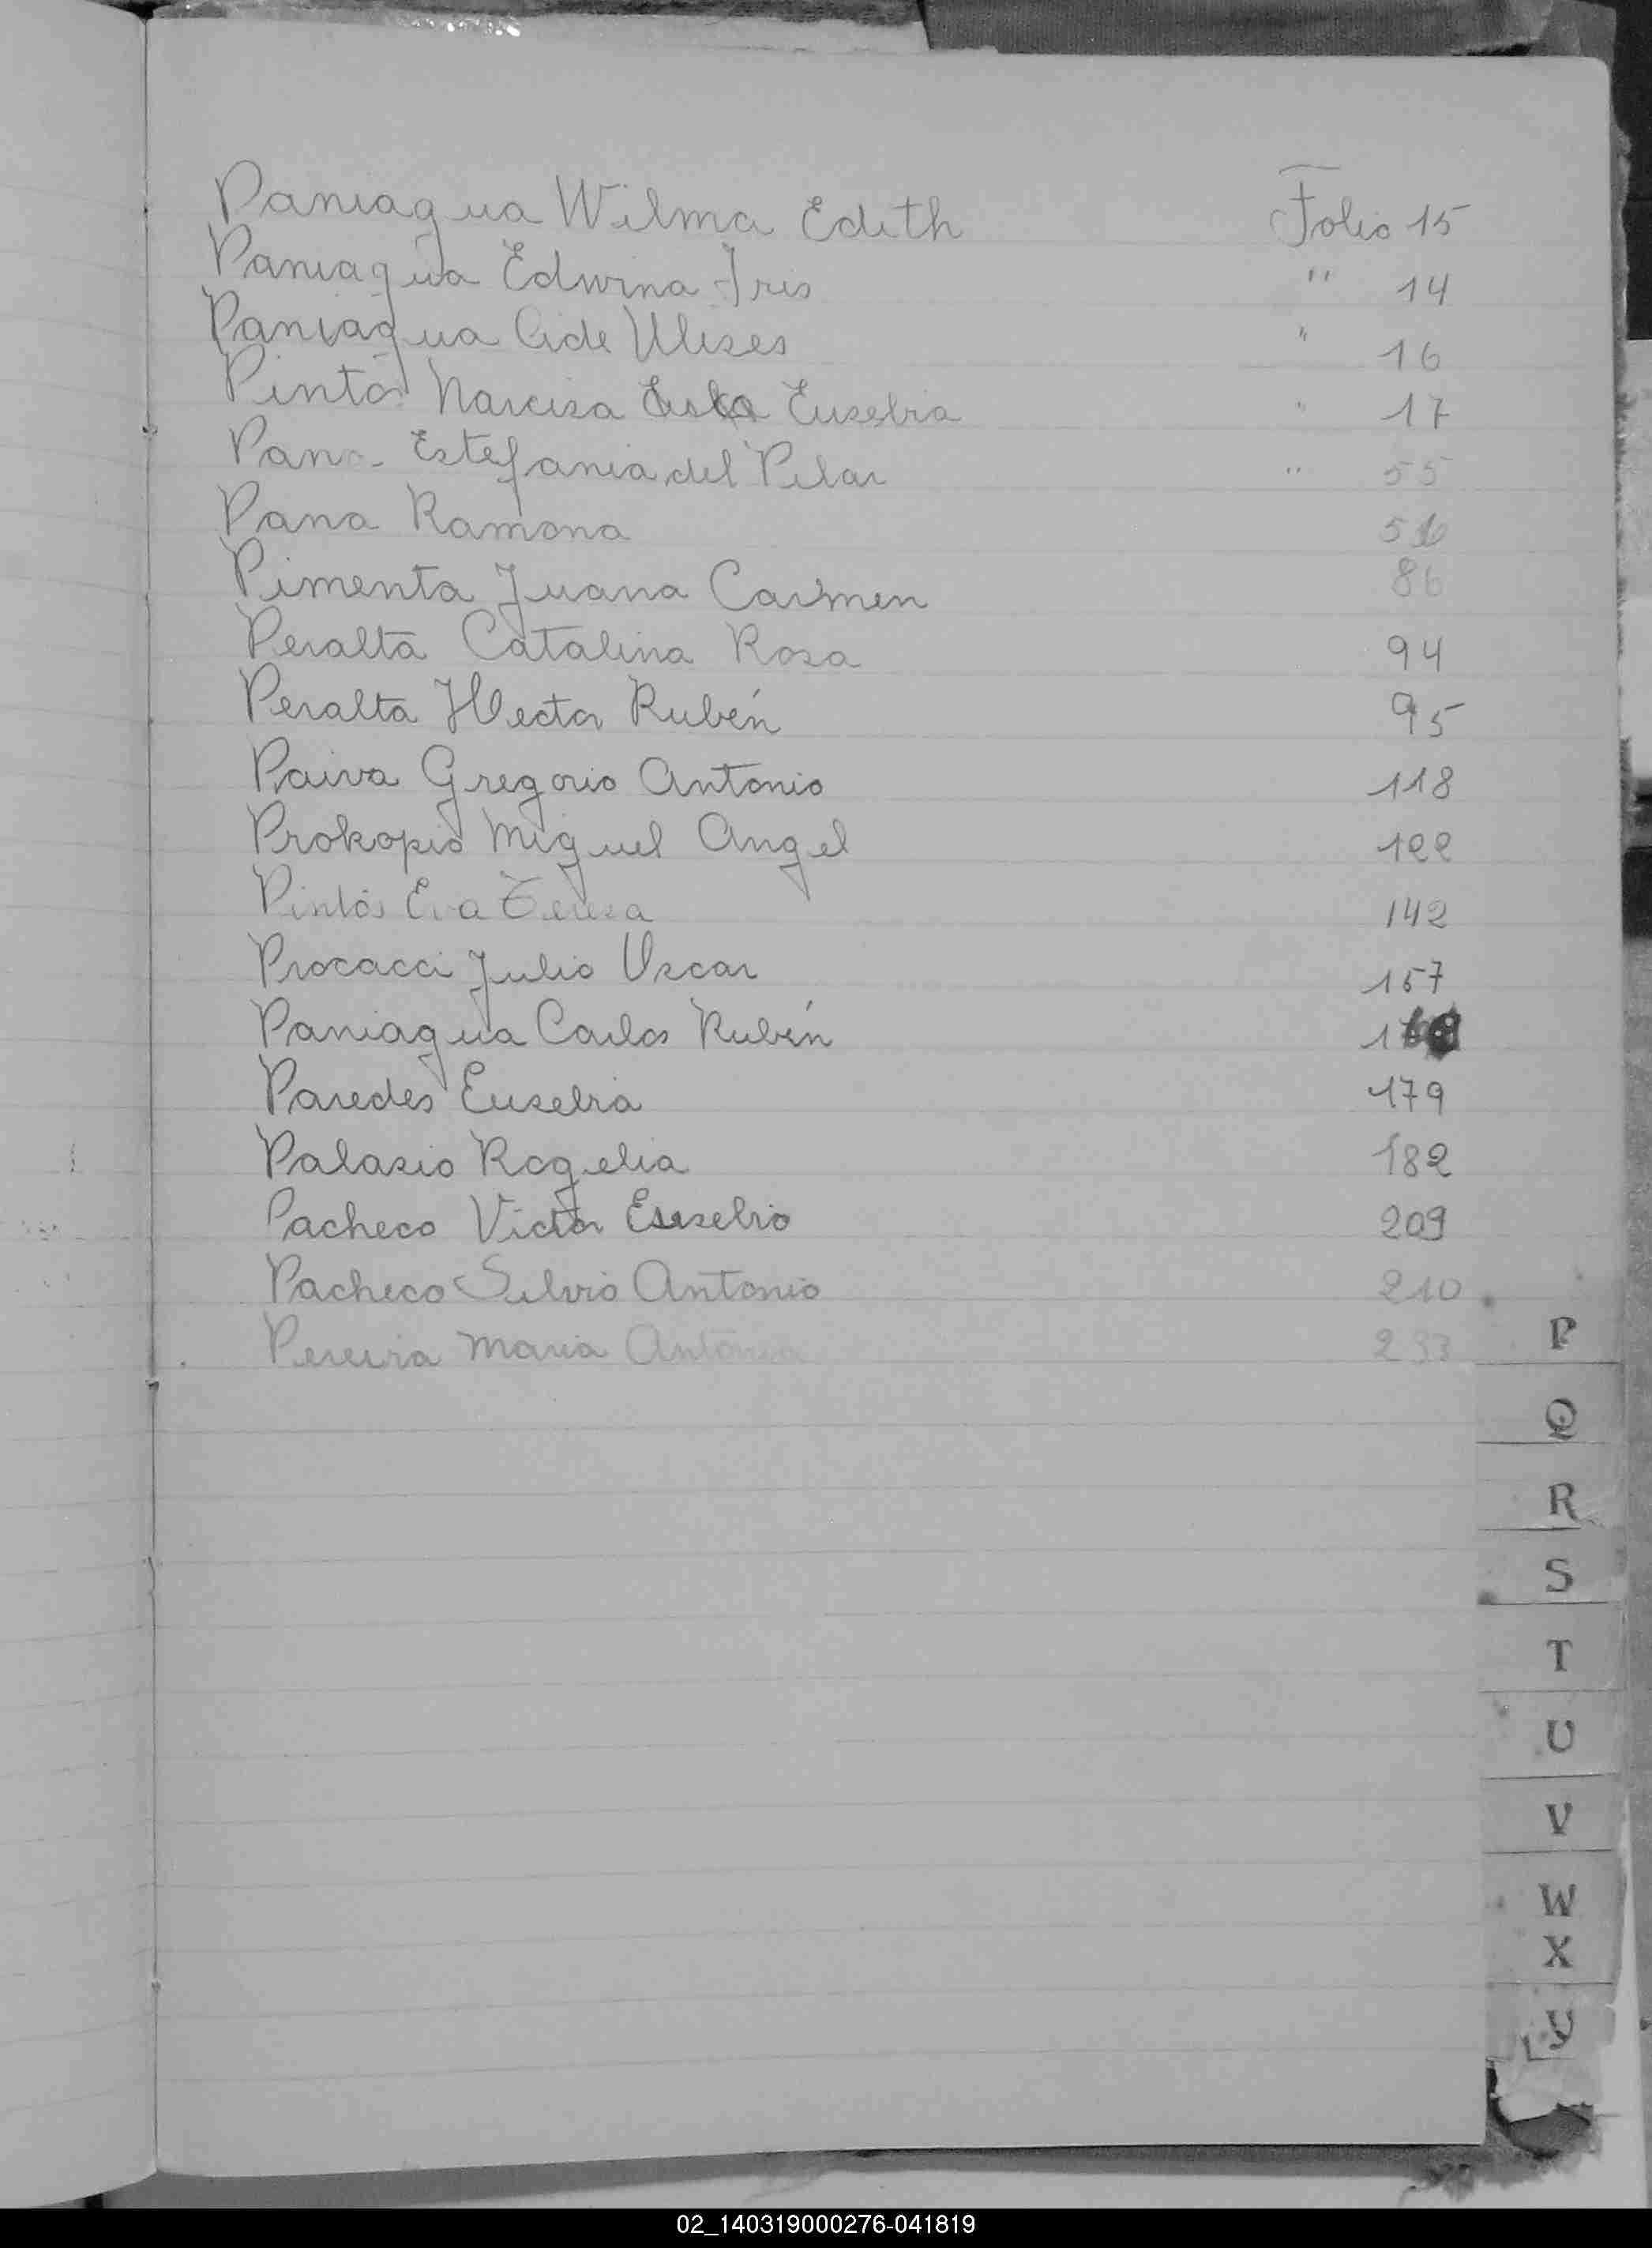 Paniagua Wilma Edith Folio 15
Paniagua Edwina Iris " 14
Paniagua Cide Ulises " 16
Pintos Narcisa Eusebia " 17
Pana Estefania del Pilar " 55
Pana Ramona 56
Pimenta Juana Carmen 86
Peralta Catalina Rosa 94
Peralta Hector Rubén 95
Paiva Gregorio Antonio 118
Prokopio Miguel Angel 122
Pintos Eva Teresa 142
Procacci Julio Oscar 157
Paniagua Carlos Rubén
Paredes Eusebia 179
Palasio Rogelia 182
Pacheco Victor Eusebio 209
Pacheco Silvio Antonio 210
Pereira Maria Antonia 233
P
Q
R
S
T
U
V
W
X
Y
02_140319000276-041819